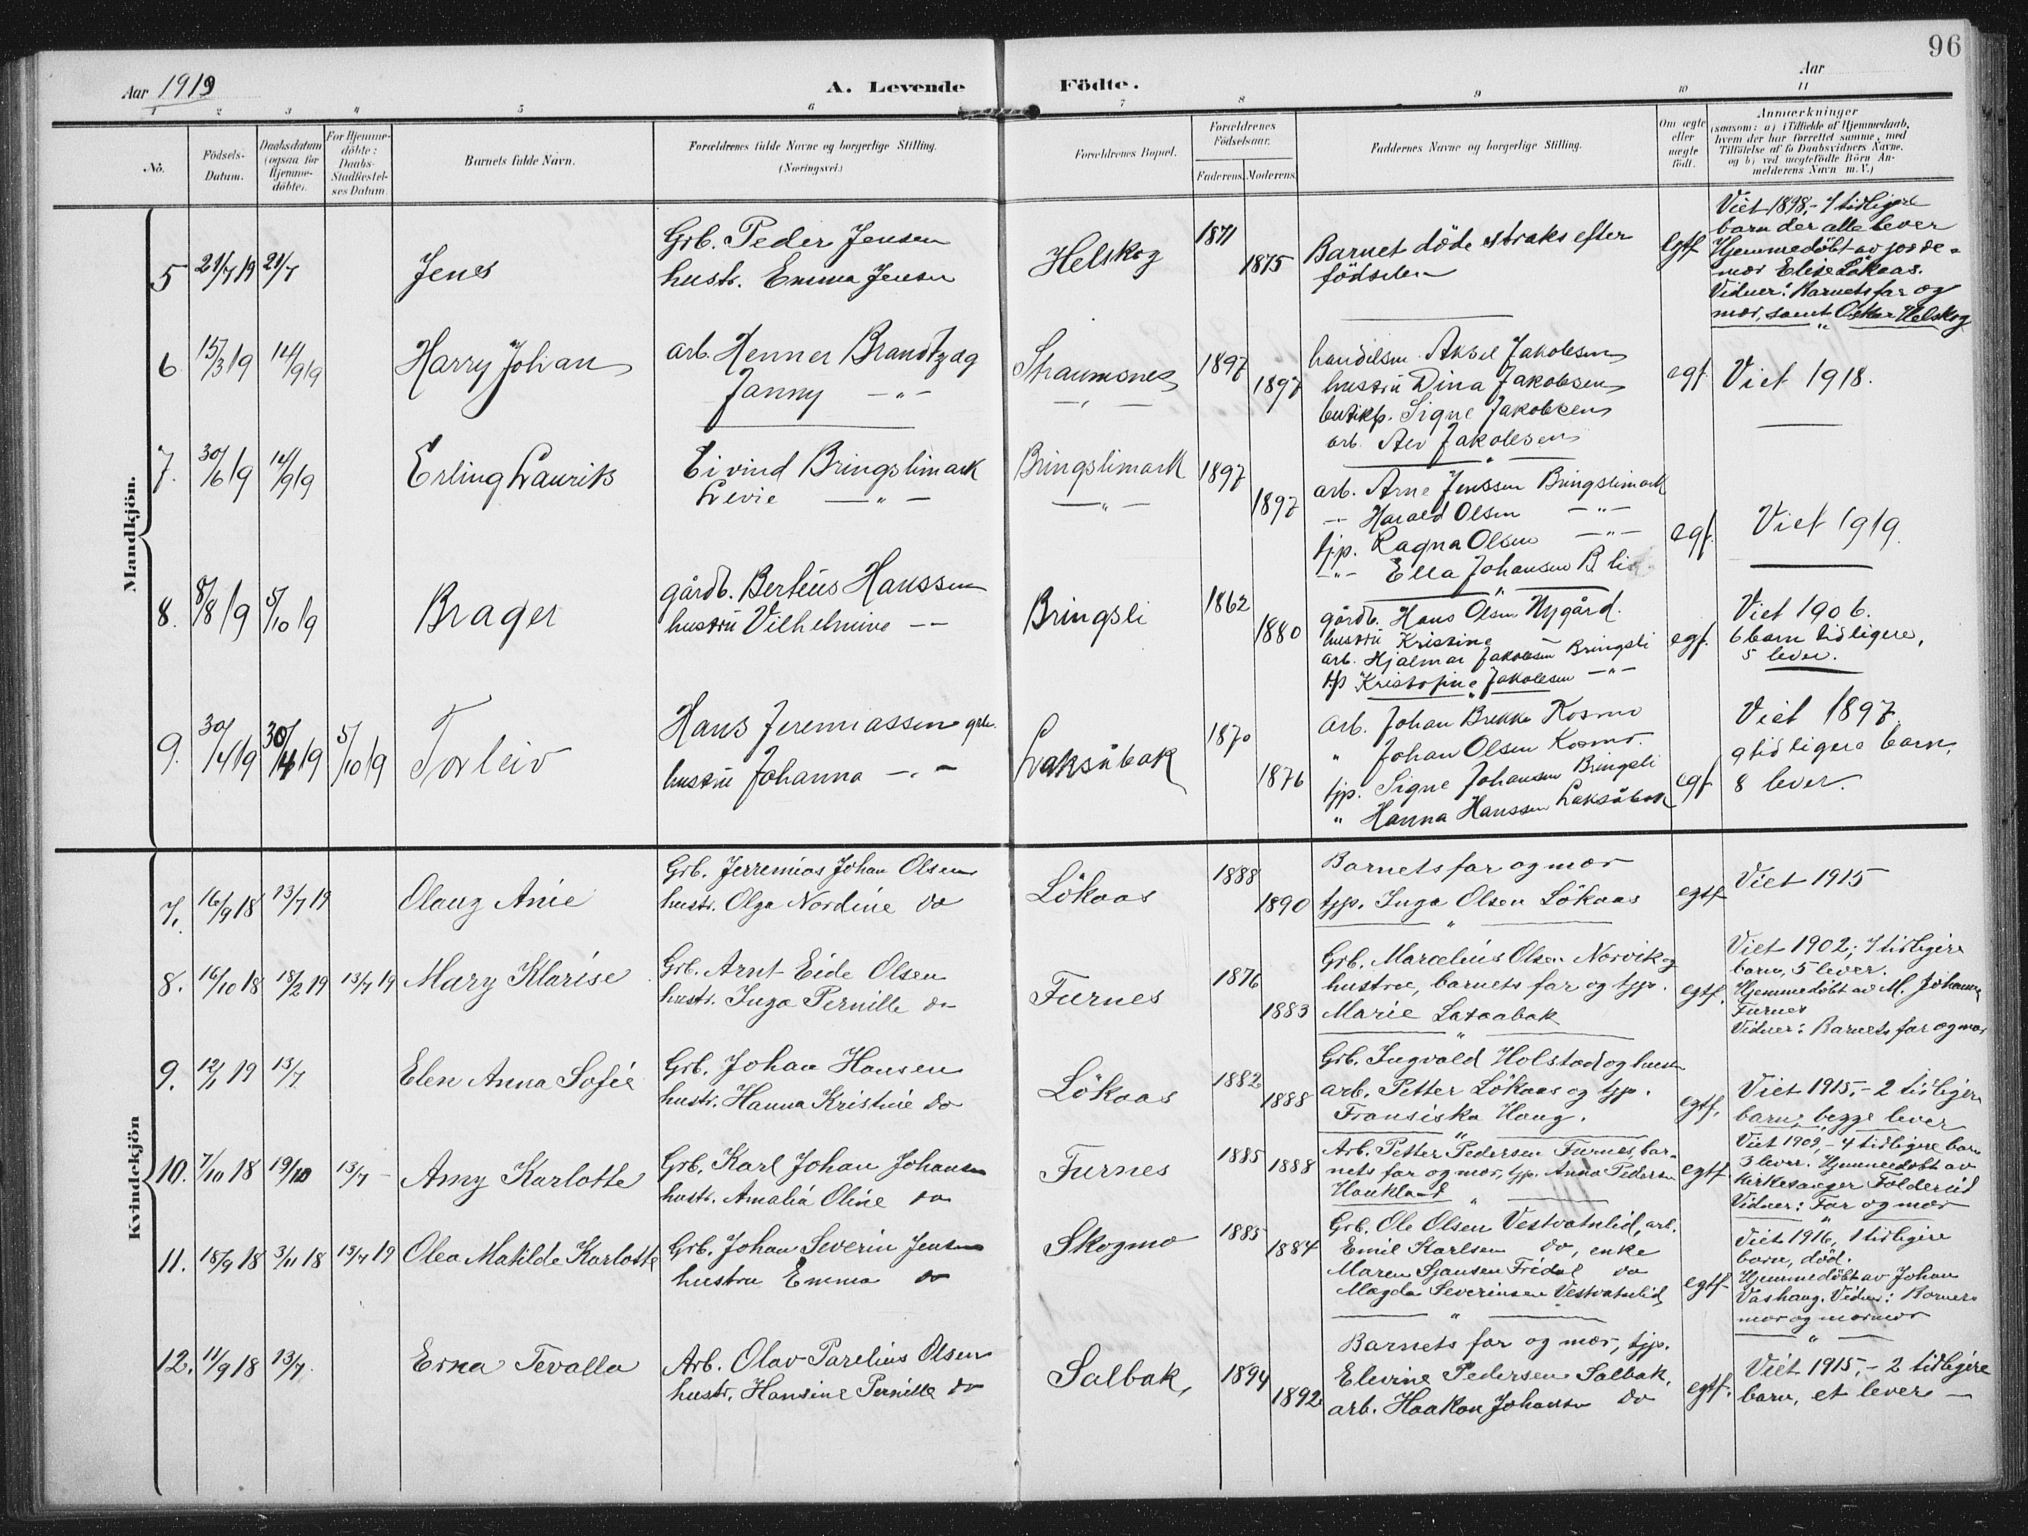 96
Aar 1919
A. Levende Födte.
Aar
1 2 3 4 5 6 7 8 9 10 11
No.
Födsels-Datum.
Daabsdatum (ogsaa for Hjemme-döbte).
For Hjemme-döbte: Daabs-Stadfæstel-ses Datum.
Barnets fulde Navn.
Forældrenes fulde Navne og borgerlige Stilling.
(Næringsvei.)
Forældrenes Bopæl.
Forældrenes Födselsaar.
Faderens. Moderens.
Faddernes Navne og borgerlige Stilling.
Om ægte eller uægte födt.
Anmærkninger
(saasom: a) i Tilfælde af Hjemmedaab,
hvem der har forrettet samme, med
Tilföielse af to Daabsvidners Navne,
og b) ved uægtefödte Börn An-
melderens Navn m. V.)
Mandkjön.
5 21/7 19 21/7 Jens
Grb. Peder Jensen
hustr. Emma Jensen
Helskog 1871 1875
Barnet døde straks efter
fødselen
egtf
Viet 1898,- 7 tidligere
barn der alle lever
Hjemmedøbt av jorde-
mor Elise Løkaas.
Vidner: Barnets far og
mor, samt Oskar Helskog
6 15/3 19 14/9 19 Harry Johan
arb. Henner Brandtzæg
Janny —„—
Straumsnes 1897 1897
handelsm. Aksel Jakobsen
hustru Dina Jakobsen
butikkp. Signe Jakobsen
arb. Alv Jakobsen
egf.
Viet 1918.
7. 30/6 19 14/9 19 Erling Laurits
Eivind Bringslimark
Levie —„—
Bringslimark
—„—
1897 1897
arb. Arne Jenssen Bringslimark
—„— Harald Olsen —„—
tjp. Ragna Olsen —„—
—„— Ella Johansen B.li
egf.
Viet 1919.
8. 8/8 19 5/10 19 Brager
gårdb. Berteus Hanssen
hustru Vilhelmine —„—
Bringsli 1862 1880
gårdb. Hans Olsen Nygård.
hustru Kristine
arb. Hjalmar Jakobsen Bringsli
tjp Kristofine Jakobsen —„—
egf.
Viet 1906.
6 barn tidligere,
5 lever.
9. 30/4 19 30/4 19 5/10 19 Torleiv
Hans Jeremiassen grb.
hustru Johanna —„—
Laksåbak 1870 1876
arb. Johan Brekke Kosmo
„ Johan Olsen Kosmo.
tjp. Signe Johansen Bringsli
„ Hanna Hanssen Laksåbak
egf
Viet 1897.
9 tidligere barn,
8 lever.
Kvindekjön
7. 16/9 18 13/7 19 Olaug Anie
Grb. Jerremias Johan Olsen
hustr. Olga Nordine do
Løkaas 1888 1890
Barnets far og mor
tjp. Inga Olsen Løkaas
egtf
Viet 1915
8. 16/10 18 18/2 19 13/7 19 Mary Klarise
Grb. Arnt Eide Olsen
hustr. Inga Pernille do
Furnes 1876 1883
Grb. Marcelius Olsen Norvik og
hustrue, barnets far og tjp.
Marie Laxaabak
egtf.
Viet 1902; 7 tidligere
barn, 5 lever.
Hjemmedøbt av M. Johann
Furnes
Vidner: Barnets far og mor
9. 12/1 19 13/7 Elen Anna Sofie
Grb. Johan Hansen
hustr. Hanna Kristine do
Løkaas 1882 1888
Grb. Ingvald Holstad og hustr
arb. Petter Løkaas og tjp.
Fransiska Haug.
egtf.
Viet 1915,- 2 tidligere
barn, begge lever
10. 7/10 18 19/10 13/7 Amy Karlotte
Grb. Karl Johan Johansen
hustr. Amalia Oline do
Furnes 1885 1888
Arb. Petter Pedersen Furnes, bar-
nets far og mor, tjp. Anna Pedersen
Haukland
egtf.
Viet 1909,- 4 tidligere barn
3 lever. Hjemmedøbt av
kirkesanger Foldereid
Vidner: Far og mor
11. 18/9 18 3/11 18 13/7 19 Olea Matilde Karlotte
Grb. Johan Severin Jensen
hustru Emma do
Skogmo 1885 1884
Grb. Ole Olsen Vestvatnlid, arb.
Emil Karlsen do, enke
Maren Sjansen Fridal do
Magda Severinsen Vestvatnlid
egtf
Viet 1916, 1 tidligere
barn, død.
Hjemmedøbt av Johan
Vashaug. Vidner: Barnets
mor og mormor
12. 11/9 18 13/7. Erna Tevalla
Arb. Olav Parelius Olsen
hustr. Hansine Pernille do
Salbak, 1894 1892
Barnets far og mor, tjp.
Elevine Pedersen Salbak,
arb. Haakon Johansen do
egtf.
Viet 1915,- 2 tidligere
barn, et lever —